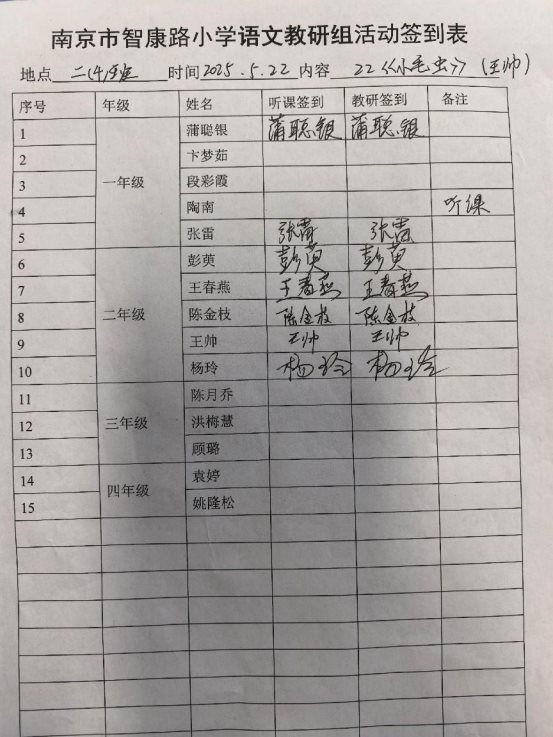 南京市智康路小学语文教研组活动签到表
地点 二(4)班 时间 2025.5.22 内容 22《小毛虫》(王帅)
序号 年级 姓名 听课签到 教研签到 备注
1 蒲聪银 蒲聪银 蒲聪银
2 卞梦茹
3 一年级 段彩霞
4 陶南 听课
5 张雷 张雷 张雷
6 彭萸 彭萸 彭萸
7 王春燕 王春燕 王春燕
8 二年级 陈金枝 陈金枝 陈金枝
9 王帅 王帅 王帅
10 杨玲 杨玲 杨玲
11 陈月乔
12 三年级 洪梅慧
13 顾璐
14 四年级 袁婷
15 姚隆松